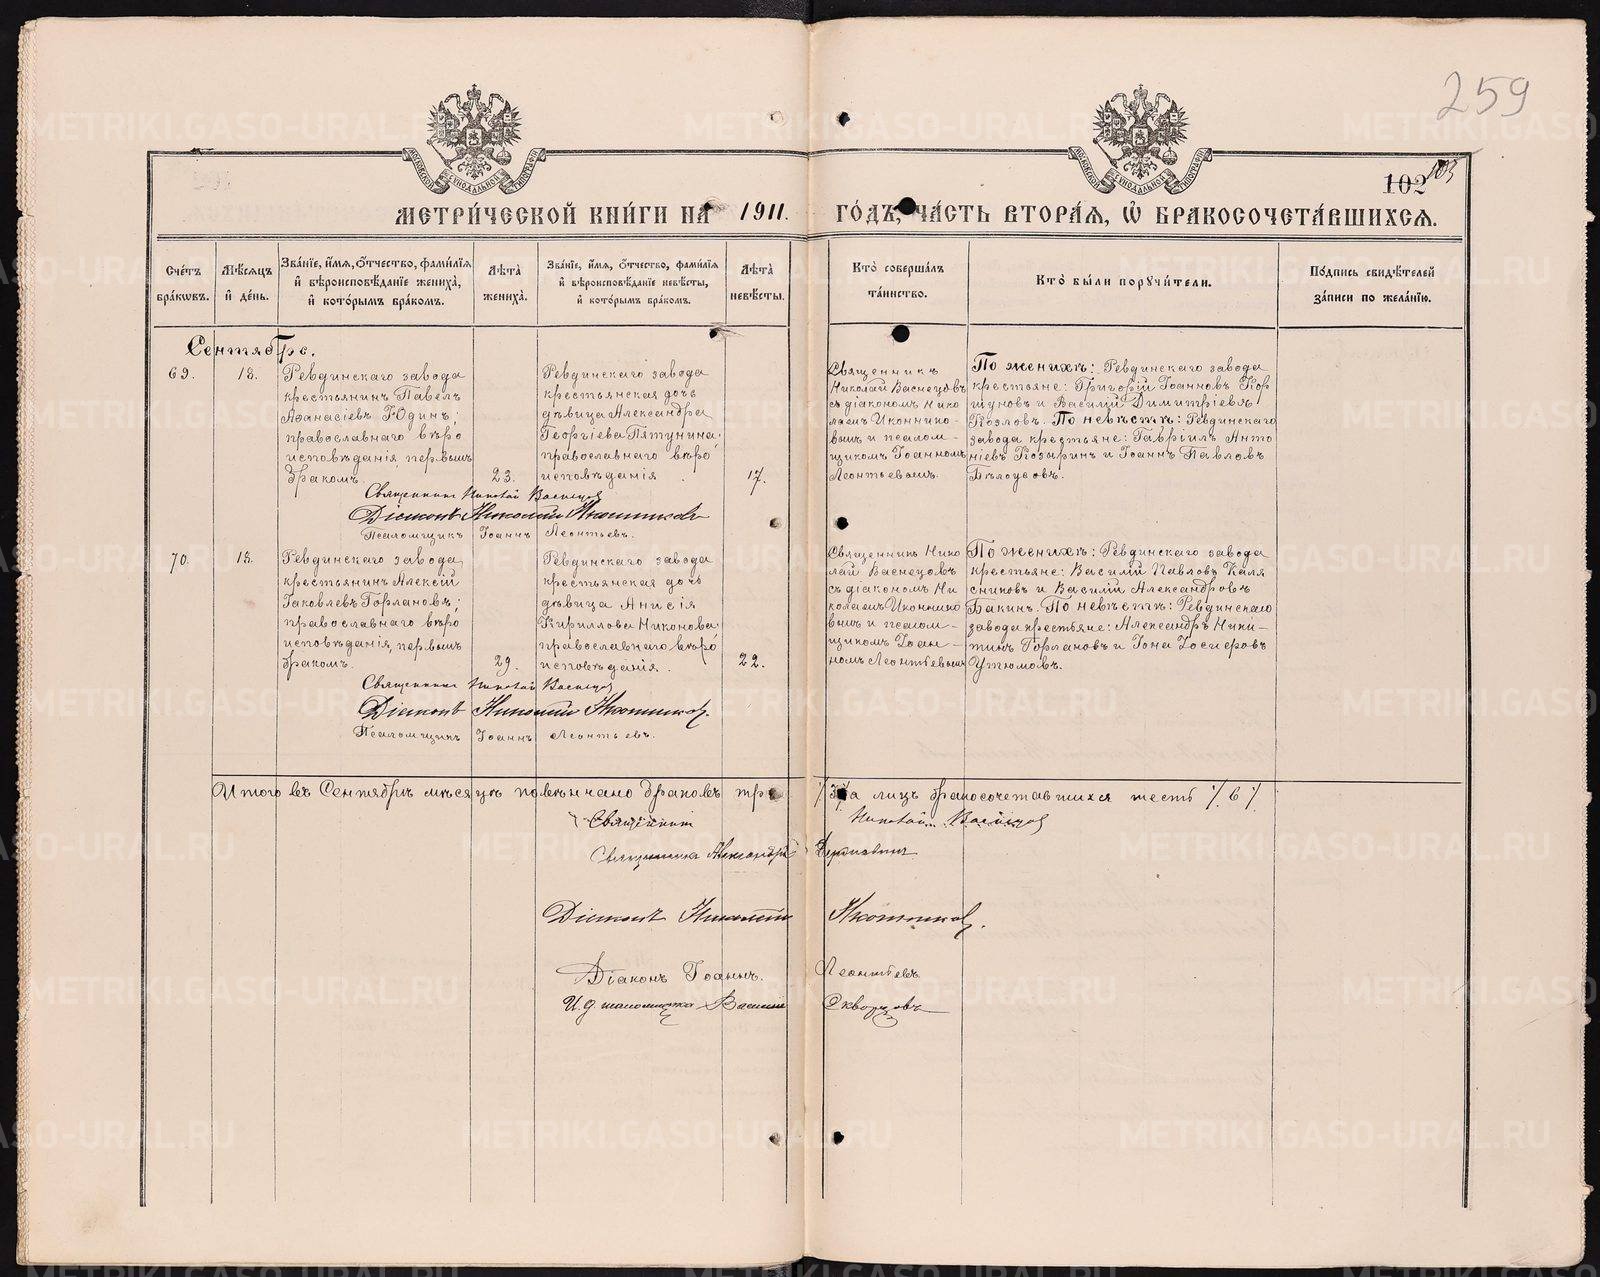 259
МОСКОВСКОЙ СѴНОДАЛЬНОЙ ТИПОГРАФІИ
МОСКОВСКОЙ СѴНОДАЛЬНОЙ ТИПОГРАФІИ
102 103
МЕТРИ́ЧЕСКОЙ КНИ́ГИ НА 1911. ГО́ДЪ, ЧА́СТЬ ВТОРА́Я, Ѿ БРАКОСОЧЕТА́ВШИХСЯ.
Сче́тъ бра́ковъ.
Мѣ́сяцъ и́ де́нь.
Зва́нїе, и́мя, о́тчество, фами́лїя и́ вѣроисповѣ́данїе жениха̀, и́ кото́рымъ бра́комъ.
Лѣ́та жениха̀.
Зва́нїе, и́мя, о́тчество, фами́лїя и́ вѣроисповѣ́данїе невѣ́сты, и́ кото́рымъ бра́комъ.
Лѣ́та невѣ́сты.
Кто̀ соверша́лъ та́инство.
Кто̀ бы́ли порꙋчи́тели.
По́дпись свидѣ́телей за́писи по жела́нїю.
Сентябрь.
69.
18.
Ревдинскаго завода
крестьянинъ Павелъ
Аѳанасіевъ Юдинъ;
православнаго вѣро
исповѣданія, первымъ
бракомъ.
23.
Ревдинскаго завода
крестьянская дочь
дѣвица Александра
Георгіева Пятунина
православнаго вѣро
исповѣданія
17.
Священникъ
Николай Васнецовъ
съ діакономъ Нико
лаемъ Иконнико-
вымъ и псалом-
щикомъ Іоанномъ
Леонтьевымъ.
По женихѣ: Ревдинскаго завода
крестьяне: Григорій Іоанновъ Кор
шуновъ и Василій Димитріевъ
Козловъ. По невѣстѣ: Ревдинскаго
завода крестьяне: Гавріилъ Анто
ніевъ Козыринъ и Іоаннъ Павловъ
Бѣлоусовъ.
Священникъ Николай Васнецов
Діаконъ Николай Иконников
Псаломщикъ Іоаннъ Леонтьевъ.
70.
18.
Ревдинскаго завода
крестьянинъ Алексій
Іаковлевъ Горлановъ;
православнаго вѣро
исповѣданія, первымъ
бракомъ.
29.
Ревдинскаго завода
крестьянская дочь
дѣвица Анисія
Кириллова Никонова
православнаго вѣро
исповѣданія.
22.
Священникъ Нико
лай Васнецовъ
съ діакономъ Ни
колаемъ Иконнико
вымъ и псалом-
щикомъ Іоан-
номъ Леонтьевымъ
По женихѣ: Ревдинскаго завода
крестьяне: Василій Павловъ Каля
сниковъ и Василій Александровъ
Бакинъ. По невѣстѣ: Ревдинскаго
завода крестьяне: Александръ Ники-
тинъ Горлановъ и Іона Іосифовъ
Утюмовъ.
Священникъ Николай Васнецов
Діаконъ Николай Иконников.
Псаломщикъ Іоаннъ Леонтьевъ.
Итого въ Сентябрѣ мѣсяцѣ повѣнчано браковъ три /3/ а лицъ бракосочетавшихся шесть /6/
Священникъ Николай Васнецов
Священникъ Александръ
Діаконъ Николай Иконников.
Діаконъ Іоаннъ Леонтьевъ.
И. д. псаломщика Василій Скворцовъ
METRIKI.GASO-URAL.RU